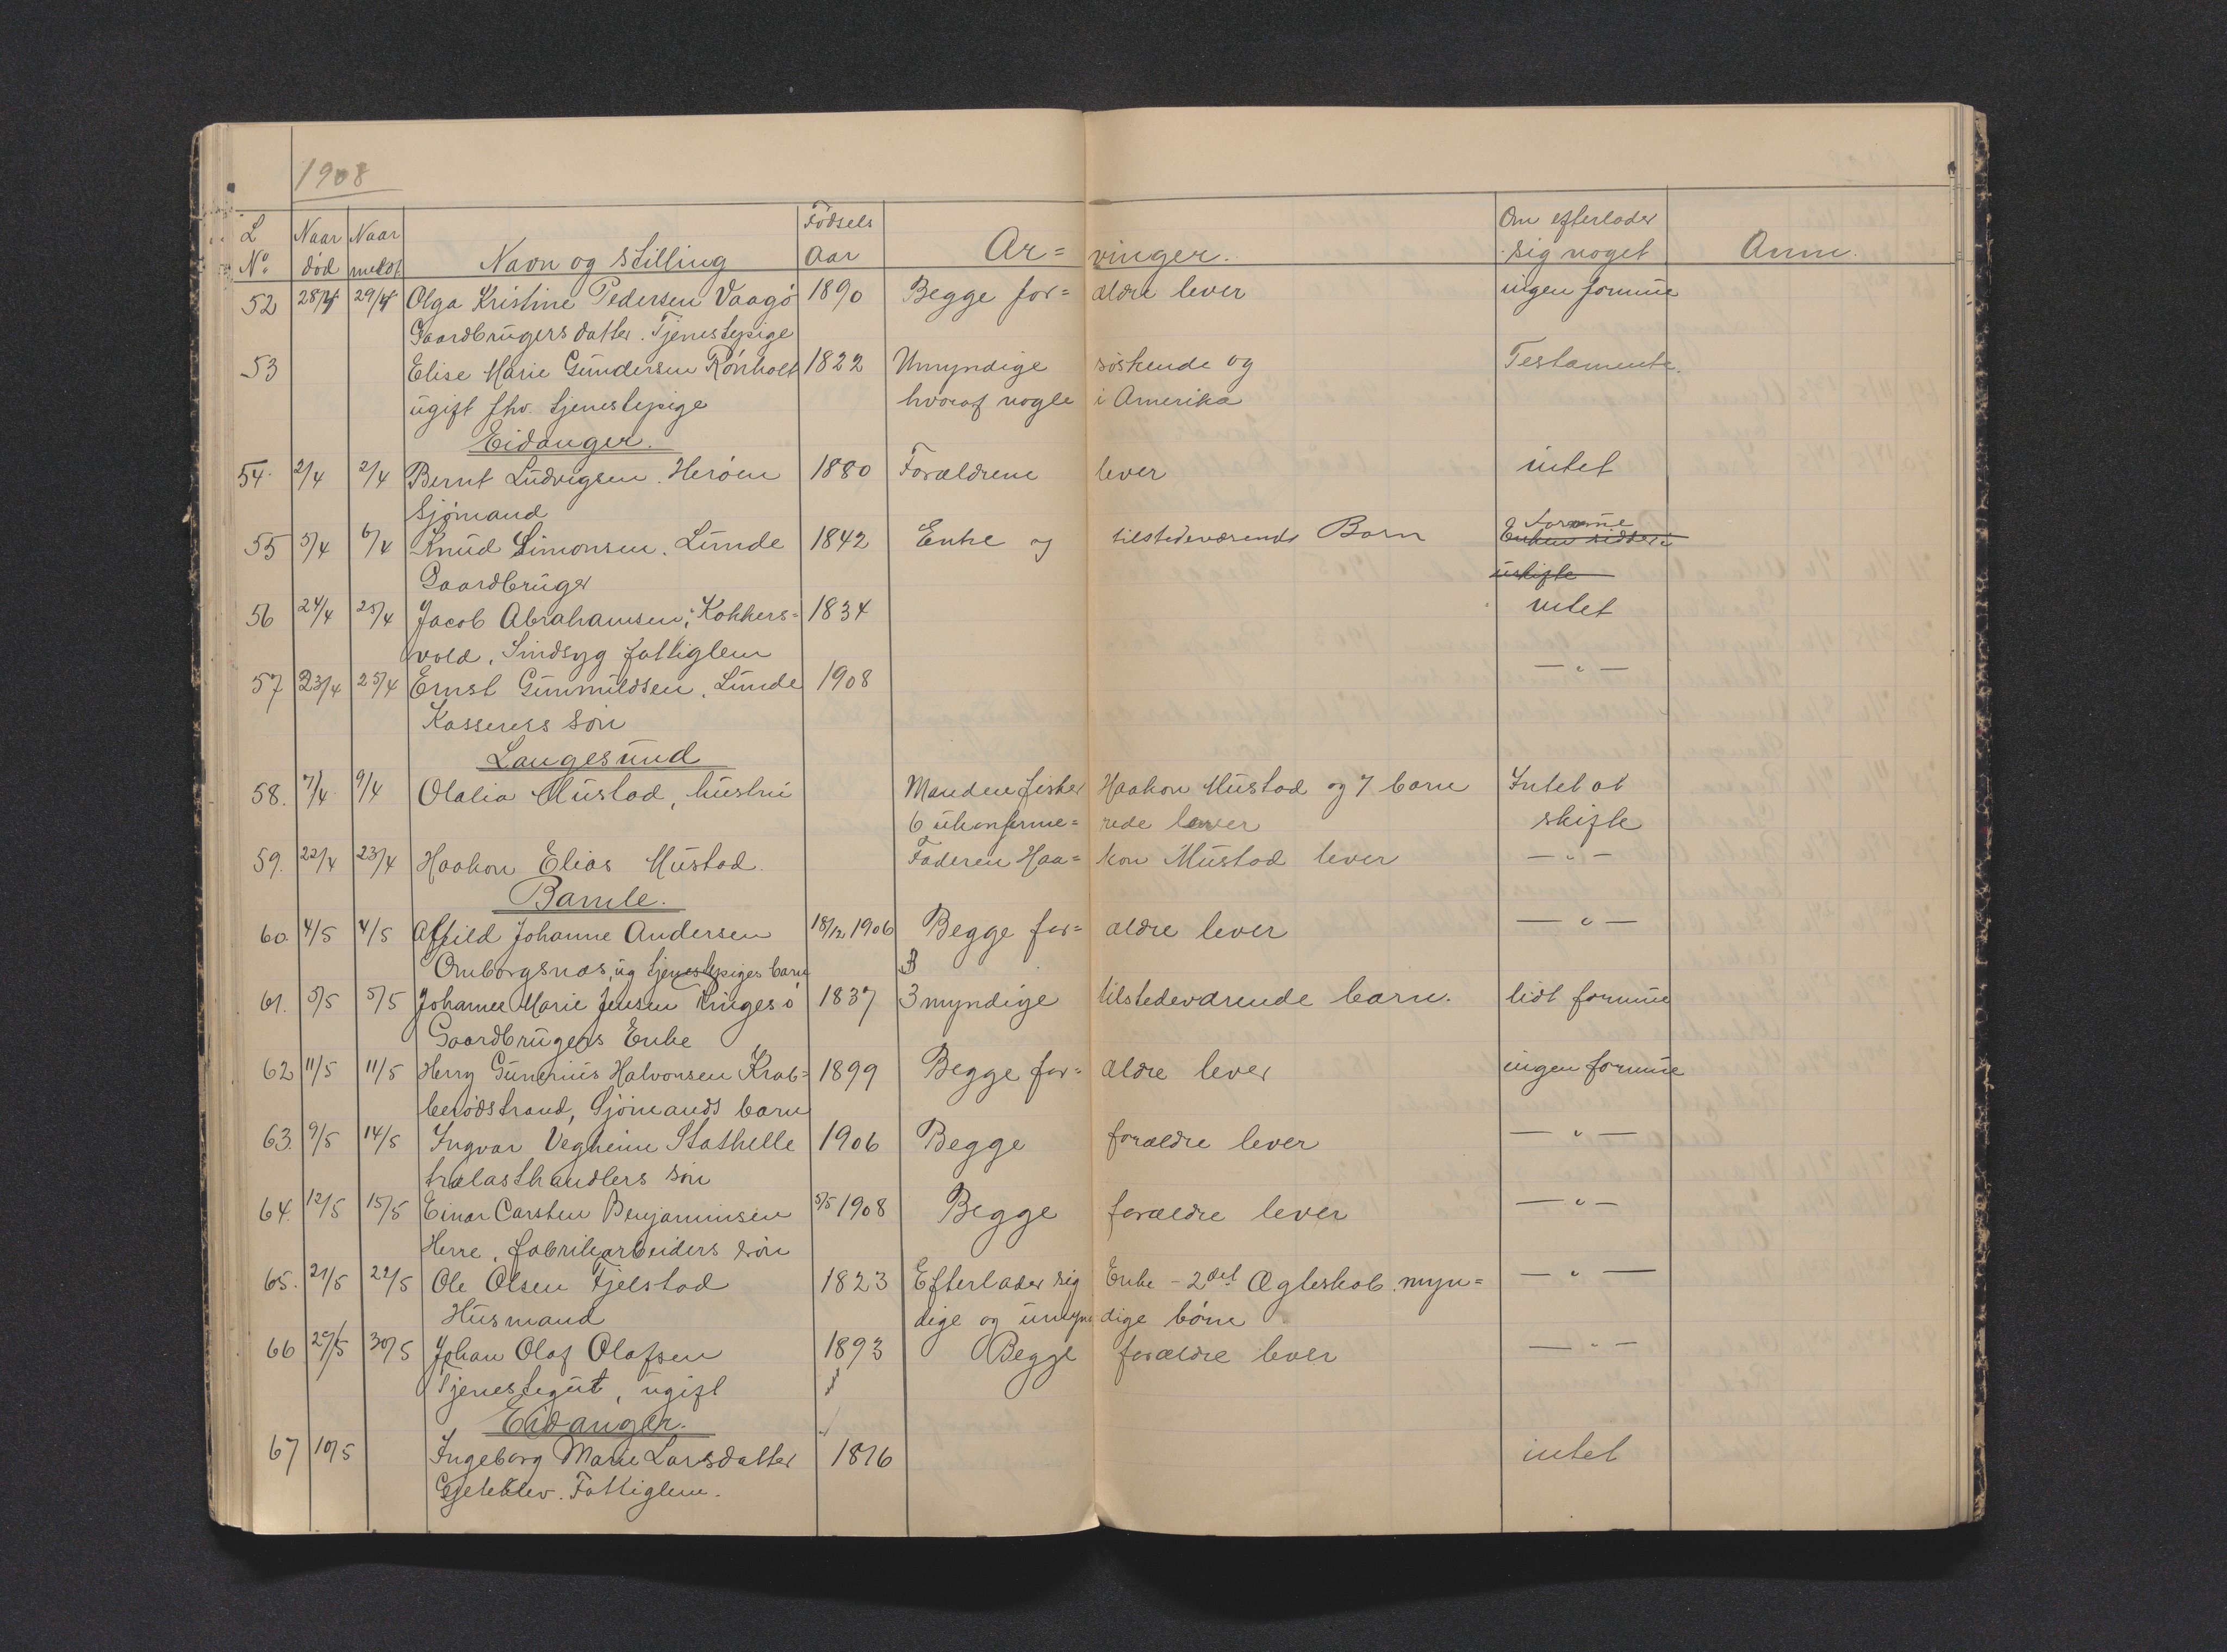 1908
L Naar Naar Fødsels Om efterlader
No. død meldt Navn og Stilling Aar Ar= vinger. sig noget Anm.
52 28/4 29/4 Olga Kristine Pedersen Vaagø 1890 Begge for= ældre lever ingen formue
Gaardbrugers datter. Tjenestepige
53 Elise Marie Gundersen Rønholt 1822 Umyndige søskende og Testamente.
ugift fhv. tjenestepige hvoraf nogle i Amerika
Eidanger.
54. 2/4 2/4 Bernt Ludvigsen. Herøen 1880 Forældrene lever intet
Sjømand
55 5/4 6/4 Knud Simonsen. Lunde 1842 Enke og tilstedeværende Børn Formue
Enken sidder i
Gaardbruger uskifte
56 24/4 25/4 Jacob Abrahamsen, Kokkers= 1834 intet
vold, Sindsyg fattiglem
57 23/4 25/4 Ernst Gunnuldsen. Lunde 1908 — " —
Kasserers søn
Langesund
58. 7/4 9/4 Olalia Mustad, hustru Manden fisker Haakon Mustad og 7 barn Intet at
6 ukonfirme= rede lever skifte
59. 22/4 23/4 Haakon Elias Mustad. Faderen Haa= kon Mustad lever — " —
Bamle.
60. 4/5 4/5 Alfild Johanne Andersen 18/12 1906 Begge for= ældre lever — " —
Omborgsnæs, ug tjenestepiges barn
61. 5/5 5/5 Johanne Marie Jensen Ringesø 1837 3 myndige tilstedeværende barn. lidt formue
Gaardbrugers Enke
62 11/5 11/5 Herry Gunerius Halvorsen Krab= 1899 Begge for= ældre lever ingen formue
berødstrand, Sjømands barn
63. 9/5 14/5 Ingvar Vegheim Stathelle 1906 Begge forældre lever — " —
trælasthandlers søn
64. 12/5 15/5 Einar Carsten Benjaminsen 5/5 1908 Begge forældre lever — " —
Herre, fabrikarbeiders søn
65. 21/5 22/5 Ole Olsen Fjelstad 1823 Efterlader sig Enke - 2det Ægteskab. myn= — " —
Husmand dige og umyn dige børn
66 29/5 30/5 Johan Olaf Olafsen 1893 Begge forældre lever — " —
Tjenestegut, ugift
Eidanger.
67 10/5 Ingeborg Marie Larsdatter 1816 intet
Gjeteklev. Fattiglem.